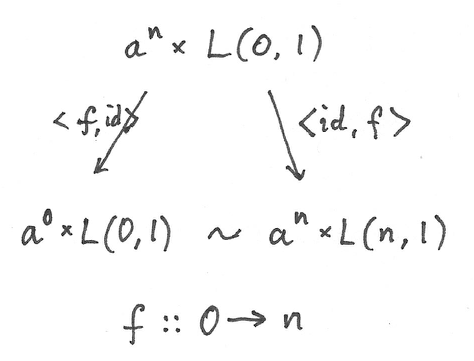 aⁿ × L(0, 1)
<f, id> <id, f>
a⁰ × L(0, 1) ~ aⁿ × L(n, 1)
f :: 0 → n